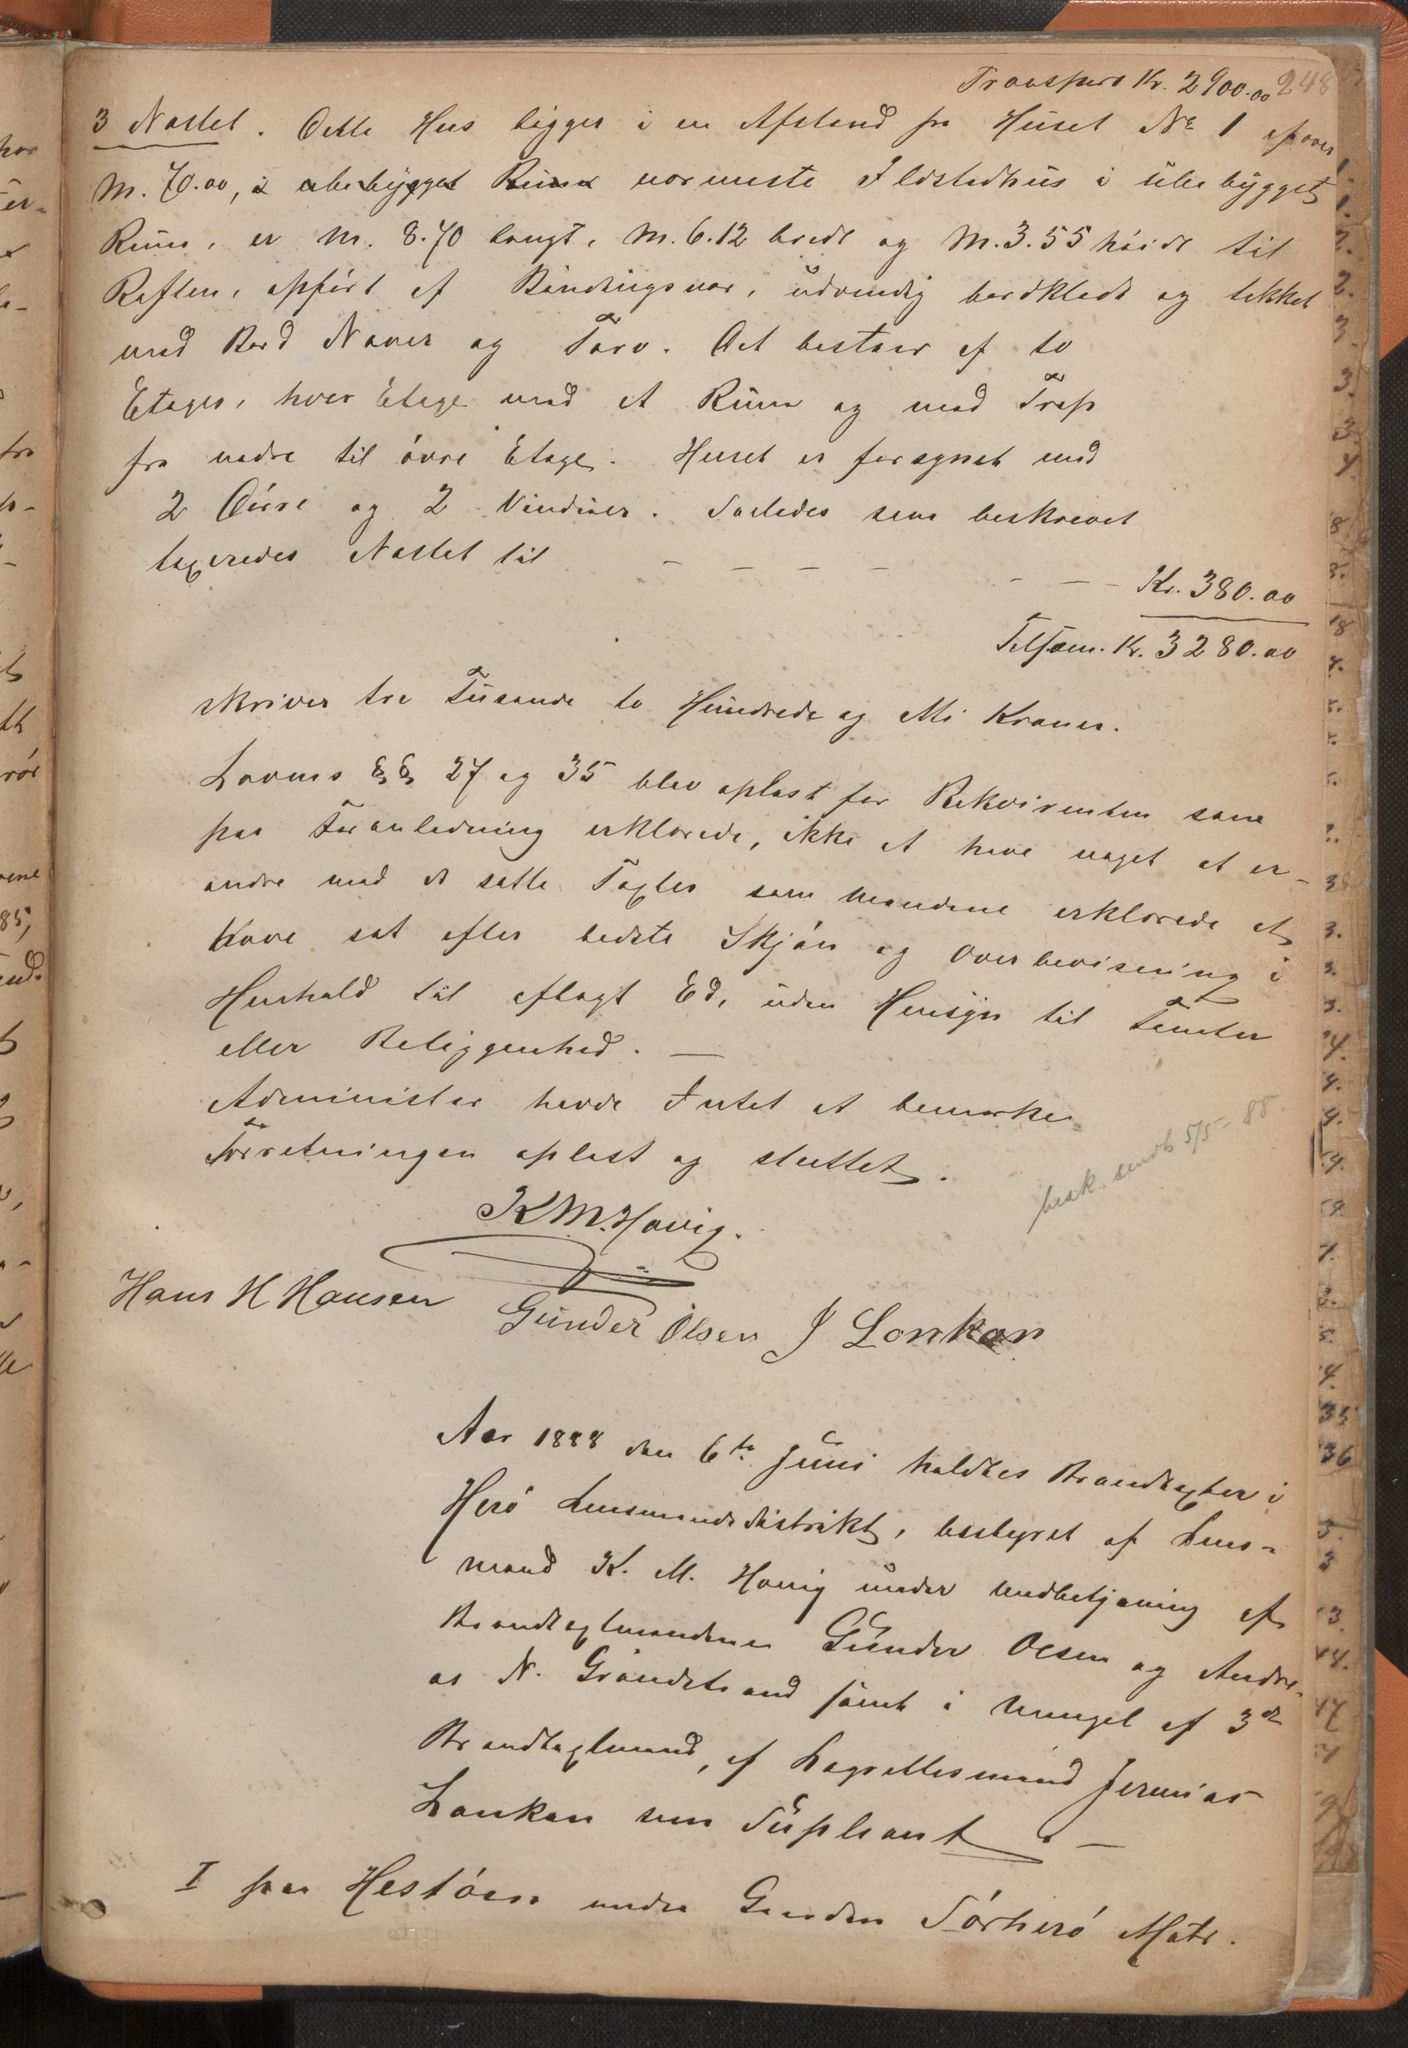 Transport Kr. 2900.00 248
3 Nøstet. Dette Hus ligger i en Afstand fra Huset No 1 af over
M. 70.00, i ubebygget Rum nærmeste Ildstedhus i ubebygget
Rum, er M. 8.70 langt, M. 6.12 bredt og M. 3.55 høidt til
Raften, opført af Bindingsver, udvendig bordklædt og tækket
med Bord Næver og Torv. Det bestaar af to
Etager, hver Etage med et Rum og med Trap
fra nedre til øvre Etage. Huset er forsynet med
2 Dørre og 2 Vinduer. Saaledes som beskrevet
taxeredes Nøstet til - - - - - - - Kr. 380.00
Tilsam. Kr. 3280.00
skriver tre Tusende to Hundrede og otti Kroner.
Lovens §§ 27 og 35 blev oplæst for Rekvirenten som
paa Foranledning erklærede, ikke at have noget at er-
indre mod de satte Taxter som Mændene erklærede at
have sat efter bedste Skjøn og Overbevisning i
Henhold til aflagt Ed, uden Hensyn til Tomter
eller Beliggenhed. —
Administor havde Intet at bemærke.
Forretningen oplæst og sluttet.
besk. sendt 5/5 - 88
K M. Hovig.
Hans H Hansen Gunder Olsen J Lonkan
Aar 1888 den 6te Juni holdtes Brandtaxter i
Herø Lensmandsdistrikt, bestyret af Lens-
mand K. M. Hovig under Medbetjening af
Brandtaxtmændene Gunder Olsen og Andre-
as N. Grøndstrand samt i Mangel af 3die
Brandtaxtmand, af Lagrettesmand Jermias
Lonkan som Supleant. —
I paa Hestøen under Gaarden Sørherø Matr.